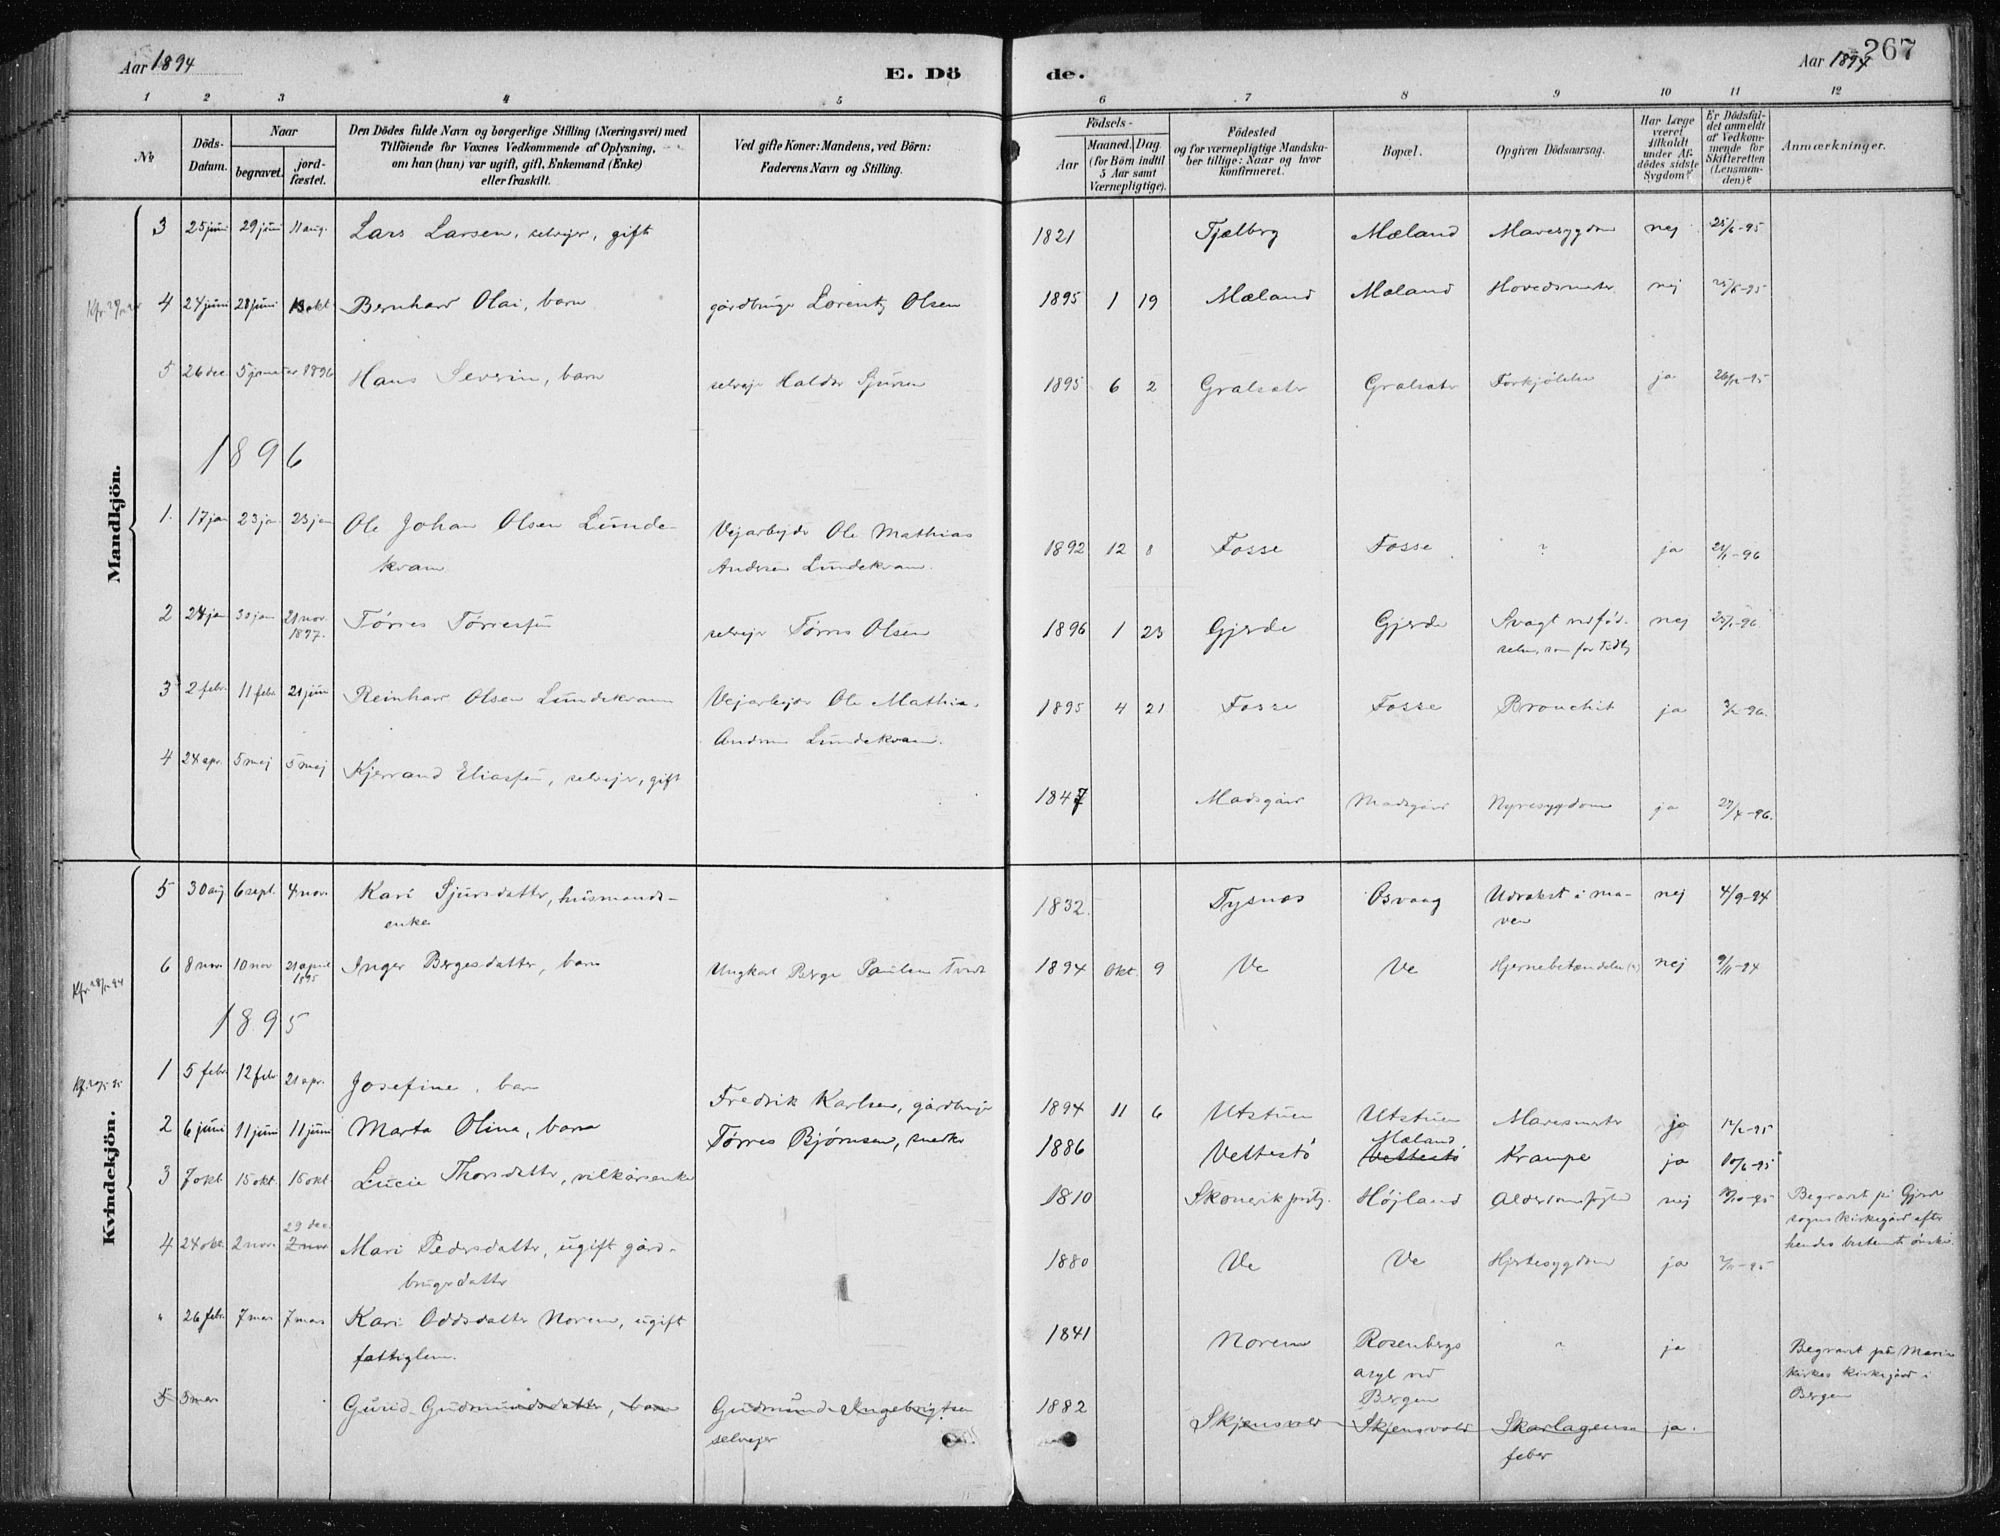 Aar 1894
E. Dö
de.
Aar 1894
267
1 2 3 4 5 6 7 8 9 10 11 12
No
Döds-Datum.
Naar
begravet.
jord-fæstet.
Den Dödes fulde Navn og borgerlige Stilling (Næringsvei) med
Tilföiende for Voxnes Vedkommende af Oplysning,
om han (hun) var ugift, gift, Enkemand (Enke)
eller fraskilt.
Ved gifte Koner: Mandens, ved Börn:
Faderens Navn og Stilling.
Födsels-
Aar
Maaned. Dag.
(for Börn indtil
5 Aar samt
Værnepligtige).
Födested
og for værnepligtige Mandska-
ber tillige: Naar og hvor
konfirmeret.
Bopæl.
Opgiven Dödsaarsag.
Har Læge
været
tilkaldt
under Af-
dödes sidste
Sygdom?
Er Dödsfal-
det anmeldt
af Vedkom-
mende for
Skifteretten
(Lensman-
den)?
Anmærkninger.
Mandkjön.
3 25 juni 29 juni 11 aug. Lars Larsen, selvejer, gift 1821 Fjælberg Mæland Mavesygdom nej 25/6-95
4 24 juni 28 juni okt Bernhard Olai, barn gårdbruger Lorentz Olsen 1895 1 19 Mæland Mæland nej 25/6-95
5 26 dec. 5 januar 1896 Hans Severin, barn selvejer Haldor Sjursen 1895 6 2 Gralsater Gralsater Forkjølelse ja
1896
1. 17 jan 23 jan. 23 jan Ole Johan Olsen Lunde-
kvam
Vejarbejder Ole Mathias
Andersen Lundekvam.
1892 12 8 Fosse Fosse ? ja
2 jan 30 jan 21 nov. 1897. Tørres Tørressen selvejer Tørres Olsen 1896 1 23 Gjerde Gjerde Svagt ved fød-
selen, nej
3 2 febr. 11 febr. 21 juni Reinhard Olsen Lundekvam Vejarbejder Ole Mathias
Andersen Lundekvam.
1895 4 21 Fosse Fosse Bronchit ja
4 24 apr. 5 mej 5 mej Kjerrand Eliassen, selvejer, gift 1847 Madsgård Madsgård Nyresygdom ja 27/4-96.
Kvindekjön.
5 30 aug 6 sept. 4 nov. Kari Sjursdatter, husmands-
enke
1832. Tysnæs Øsvaag Udvækst i ma-
ven
nej 4/9-94
6 8 nov. 10 nov 21 april 1895 Inger Bergesdatter, barn Ungkarl Berge Paulsen Tvedt 1894 Okt. 9 Ve Ve Hjernebetændelse (?) nej 9/11-94
1895
1 5 febr. 12 febr. 21 apr. Josefine, barn Fredrik Karlsen, gårdbruger 1894 11 6 Utstuen Utstuen ja 12/2-95
2 6 juni 11 juni 11 juni Marta Olina, barn Tørres Bjørnsen, snedker 1886 Vettestö Mæland Vettestö Krampe ja 10/6-95
3 7 okt 15 okt. 15 okt Lucie Thorsdatter, vilkårsenke 1810 Skonevik prstgj. Højland nej
Begravet på Gjerde
sogns kirkegård efter
hendes bestemte önske.
4 24 okt. 2 nov. 29 dec. 2 nov. Mari Pedersdatter, ugift gård-
brugerdatter
1880 Ve Ve Hjertesygdom ja 2/11-95
" 26 febr. 7 mars 7 mars Kari Oddsdatter Norem, ugift
fattiglem.
1841 Norem Rosenbergs
asyl ved
Bergen
" ja
Begravet på Marie
kirkes kirkegård i
Bergen
5 3 mars Gurid Gudmundsdatter, barn Gudmund Ingebrigtsen
selvejer
1882 Skjensvold Skjensvold Skarlagens-
feber
ja.